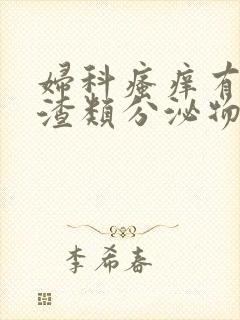 婦科瘙痒有
渣類分泌物
李希春